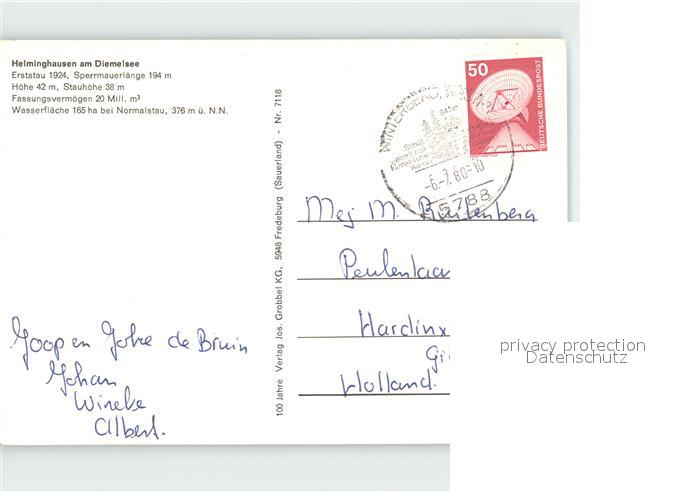 Helminghausen am Diemelsee
Erststau 1924, Sperrmauerlänge 194 m
Höhe 42 m, Stauhöhe 38 m
Fassungsvermögen 20 Mill. m³
Wasserfläche 165 ha bei Normalstau, 376 m ü. N.N.
100 Jahre Verlag Jos. Grobbel KG, 5948 Fredeburg (Sauerland) - Nr. 7118
50
DEUTSCHE BUNDESPOST
WINTERBERG,
-6.-7.80-10
5788
Mej M.
Peulenlaa
Hardinx
Gi
Holland.
Joop en Joke de Bruin
Johan
Wineke
Albert.
privacy protection
Datenschutz